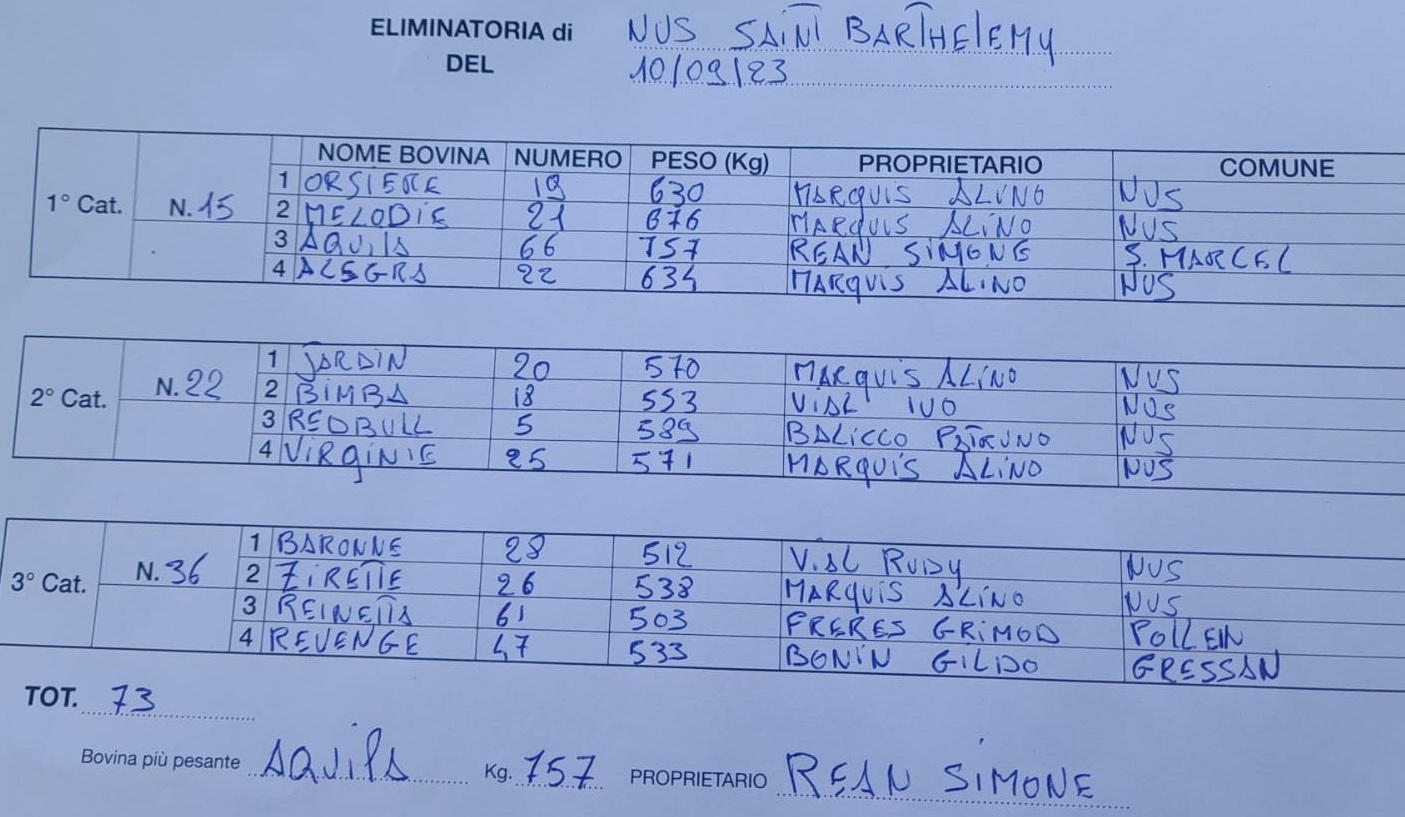 ELIMINATORIA di NUS SAINT BARTHELEMY
DEL 10/09/23
NOME BOVINA NUMERO PESO (Kg) PROPRIETARIO COMUNE
1° Cat. N. 15
1 ORSIERE 19 630 MARQUIS ALINO NUS
2 MELODIE 21 676 MARQUIS ALINO NUS
3 AQUILA 66 757 REAN SIMONE S. MARCEL
4 ALEGRA 22 634 MARQUIS ALINO NUS
2° Cat. N. 22
1 JARDIN 20 570 MARQUIS ALINO NUS
2 BIMBA 18 553 VIAL IVO NUS
3 REDBULL 5 589 BALICCO PETRUNO NUS
4 VIRGINIE 25 571 MARQUIS ALINO NUS
3° Cat. N. 36
1 BARONNE 28 512 VIAL RUDY NUS
2 ZIRETTE 26 538 MARQUIS ALINO NUS
3 REINETTA 61 503 FRERES GRIMOD POLLEIN
4 REVENGE 47 533 BONIN GILDO GRESSAN
TOT. 73
Bovina più pesante AQUILA Kg. 757 PROPRIETARIO REAN SIMONE